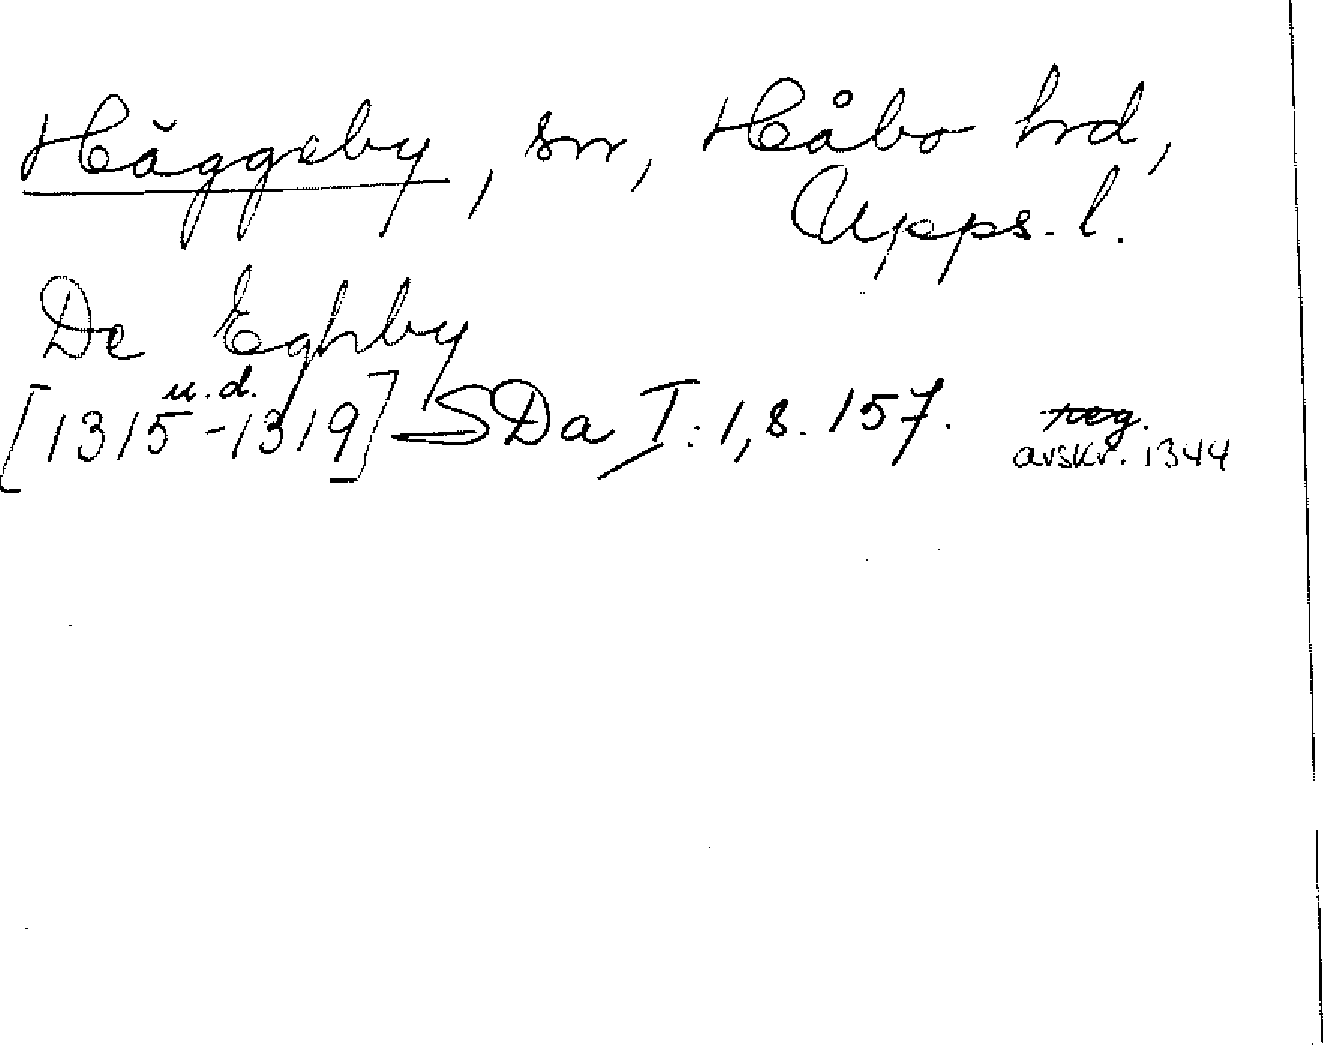 Häggeby, sn, Håbo hrd,
Upps. l.
De Eghby
u. d.
[1315-1319] SDa I: 1, s. 157. reg.
avskr. 1344